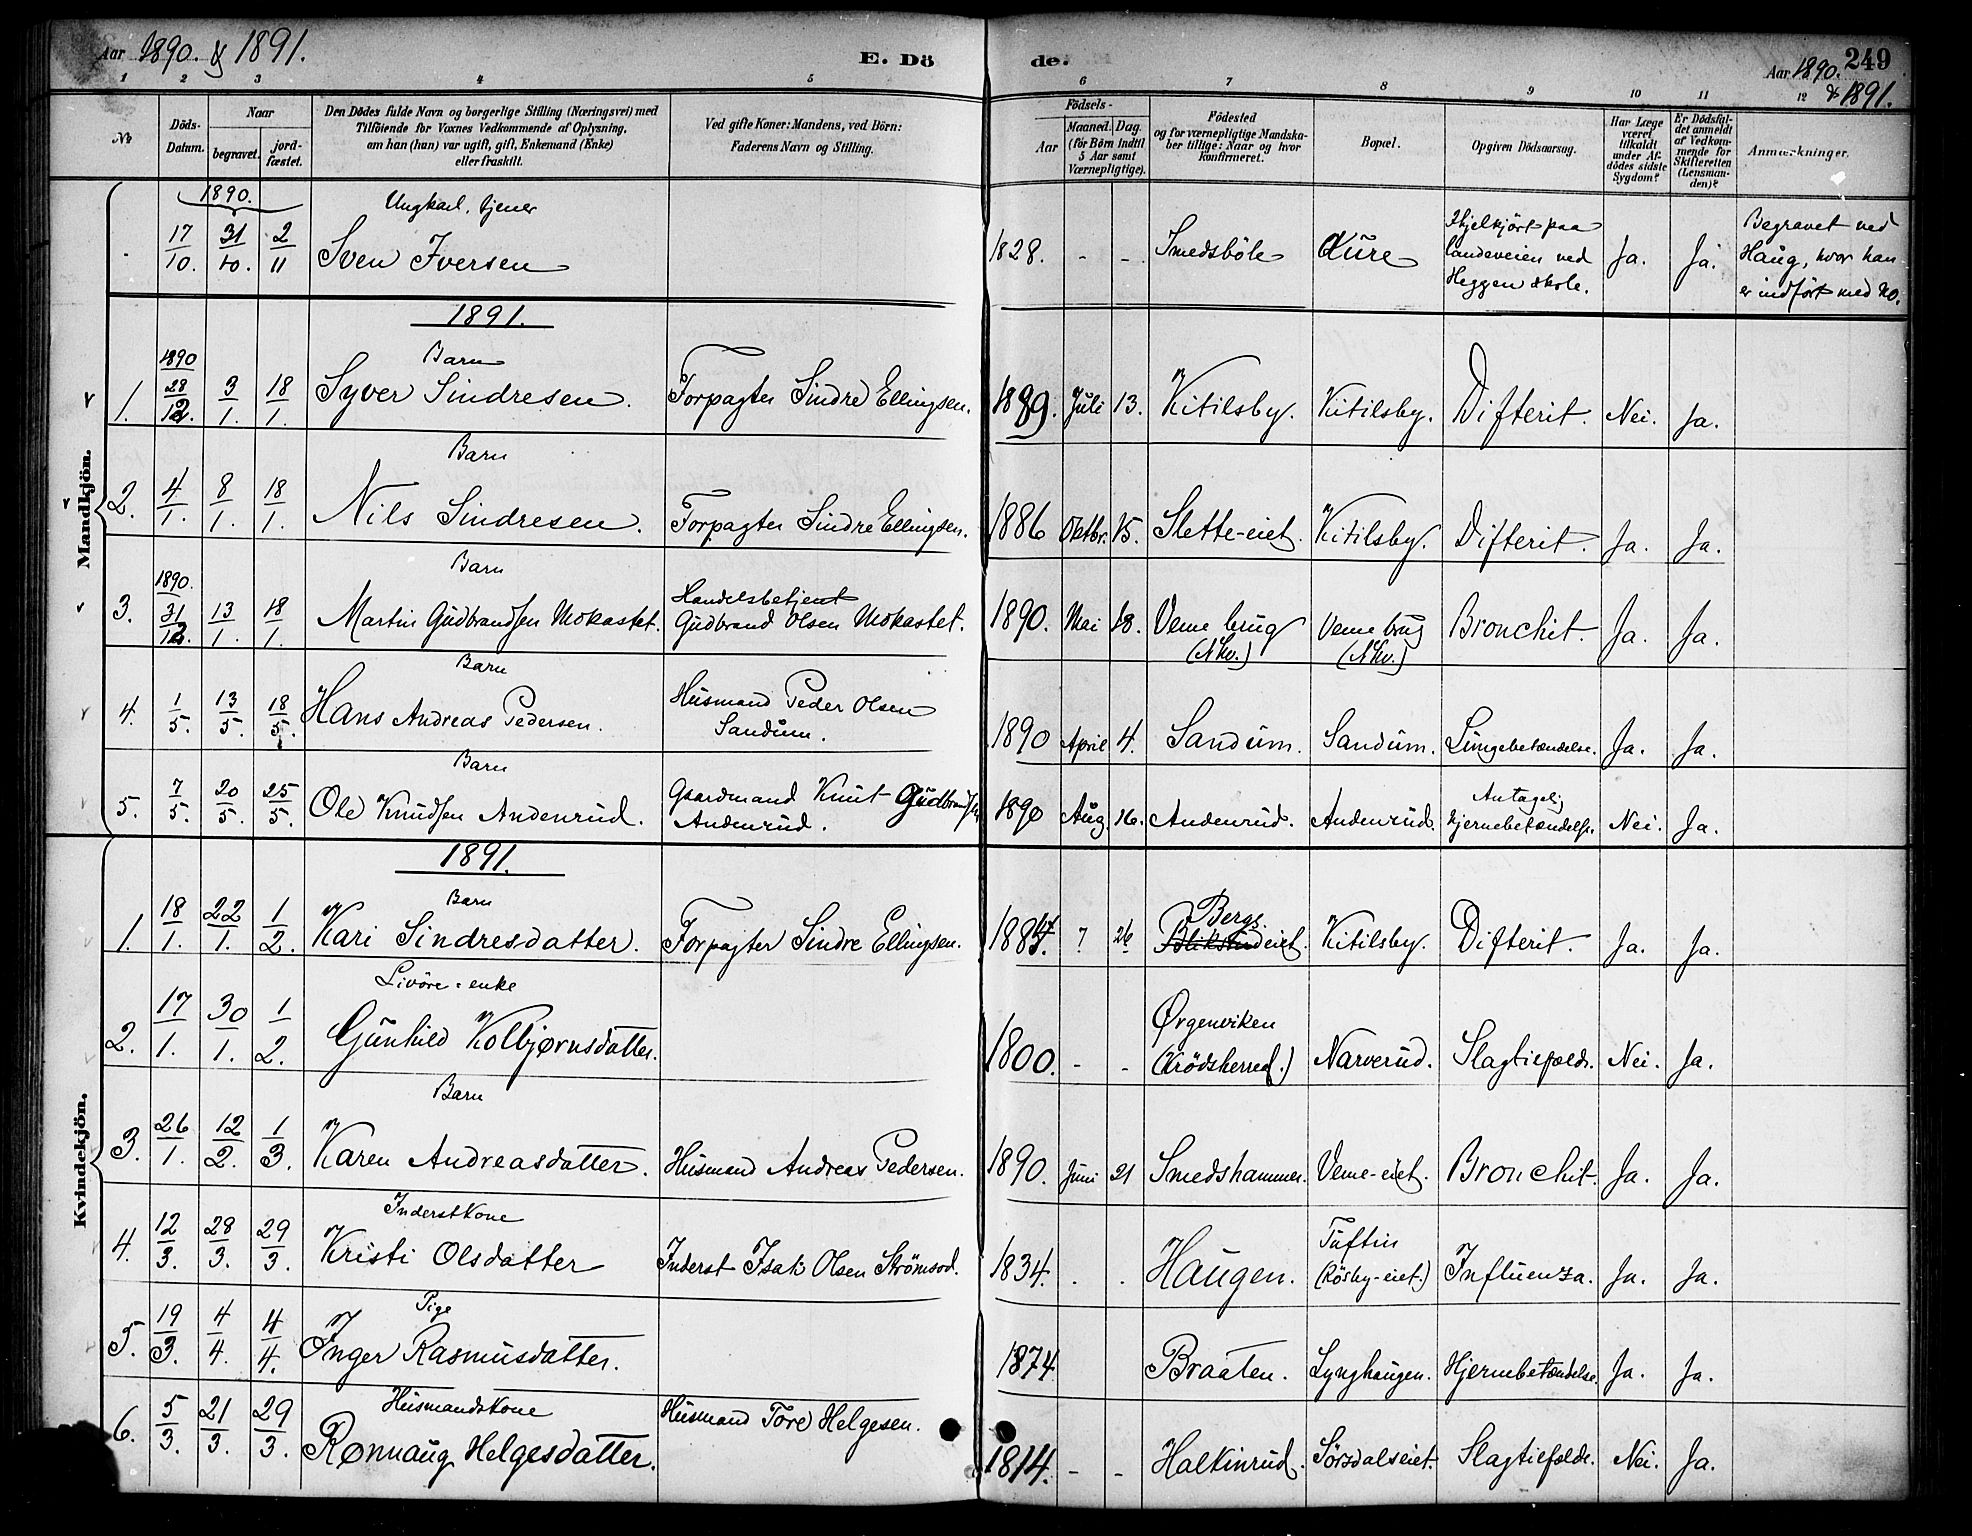 Aar 1890. & 1891.
E. Dö
de.
Aar 1890. 249
& 1891.
1 2 3 4 5 6 7 8 9 10 11 12
No
Döds-Datum.
Naar
begravet.
jord-fæstet.
Den Dödes fulde Navn og borgerlige Stilling (Næringsvei) med
Tilföiende for Voxnes Vedkommende af Oplysning,
om han (hun) var ugift, gift, Enkemand (Enke)
eller fraskilt.
Ved gifte Koner: Mandens, ved Börn:
Faderens Navn og Stilling.
Födsels-
Aar
Maaned. Dag.
(for Börn indtil
5 Aar samt
Værnepligtige).
Födested
og for værnepligtige Mandska-
ber tillige: Naar og hvor
konfirmeret.
Bopæl.
Opgiven Dödsaarsag.
Har Læge
været
tilkaldt
under Af-
dödes sidste
Sygdom?
Er Dödsfal-
det anmeldt
af Vedkom-
mende for
Skifteretten
(Lensman-
den)?
Anmærkninger.
Mandkjön.
1890.
Ungkarl, tjener
17/10. 31/10. 2/11 Sven Iversen 1828. - - Smedsböle Kure Ihjelkjört paa
landeveien ved
Heggen skole. Ja. Ja. Begravet ved
Haug, hvor han
er indfört med No.
1891.
1890 Barn
1. 28/12. 3/1. 18/1. Syver Sindresen. Forpagter Sindre Ellingsen. 1889. Juli 13. Kitilsby. Kitilsby. Difterit. Nei. Ja.
Barn
2. 4/1. 8/1. 18/1. Nils Sindresen. Forpagter Sindre Ellingsen. 1886 Oktbr. 15. Slette-eiet. Kitilsby. Difterit. Ja. Ja.
1890. Barn
3. 31/12. 13/1. 18/1. Martin Gudbrandsen Mokastet. Handelsbetjent
Gudbrand Olsen Mokastet. 1890. Mai 18. Veme brug
(Nkv.) Veme brug
(Nkv.) Bronchit. Ja. Ja.
Barn
4. 1/5. 13/5. 18/5. Hans Andreas Pedersen. Husmand Peder Olsen
Sandum. 1890 April 4. Sandum. Sandum. Lungebetændelse. Ja. Ja.
Barn
5. 7/5. 20/5. 25/5. Ole Knudsen Andenrud. Gaardmand Knut Gudbrandsen
Andenrud. 1890 Aug. 16. Andenrud. Andenrud. Antagelig
hjernebetændelse. Nei. Ja.
Kvindekjön.
1891.
Barn
1. 18/1. 22/1. 1/2. Kari Sindresdatter. Forpagter Sindre Ellingsen. 1884. 7 26 Bergs
eiet. Kitilsby. Difterit. Ja. Ja.
Livöre-enke
2. 17/1. 30/1. 1/2. Gunhild Kolbjørnsdatter. 1800. - - Ørgenviken
(Krödsherred.) Narverud. Slagtilfælde. Nei. Ja.
Barn
3. 26/1. 12/2. 1/3. Karen Andreasdatter. Husmand Andreas Pedersen. 1890. Juni 21 Smedshammer. Veme-eiet. Bronchit. Ja. Ja.
Inderstkone
4. 12/3. 28/3. 29/3. Kristi Olsdatter Inderst Isak Olsen Strömsod. 1834. . . Haugen. Tuftin
(Rösby-eiet.) Influenza. Ja. Ja.
Pige
5. 19/3. 4/4. 4/4. Inger Rasmusdatter. 1874 Braaten. Lynghaugen. Hjernebetændelse. Ja. Ja.
Husmandskone
6. 5/3. 21/3. 29/3. Rønnaug Helgesdatter. Husmand Tore Helgesen. 1814. - - Halkinrud. Sörsdalseiet. Slagtilfælde. Nei. Ja.